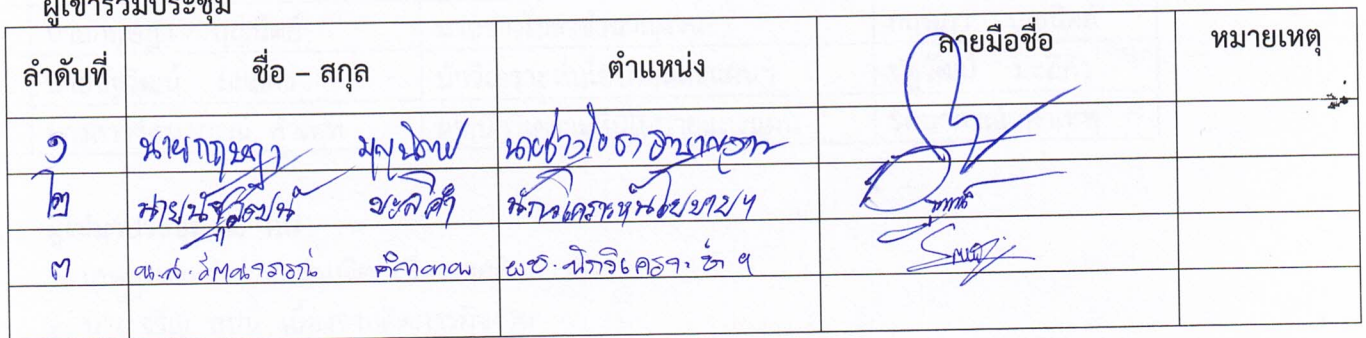 ผู้เข้าร่วมประชุม
ลำดับที่ ชื่อ – สกุล ตำแหน่ง ลายมือชื่อ หมายเหตุ
๑ นายกฤษฎา บุญนิตย์ นายช่างโยธาชำนาญงาน
๒ นายนัฐวัฒน์ มะลิคำ นักวิเคราะห์นโยบายฯ
๓ น.ส. รัตนาภรณ์ ผช. นักวิเคราะห์ ฯ